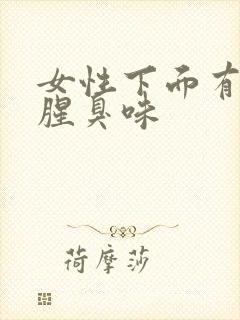 女性下面有
腥臭味
荷摩莎